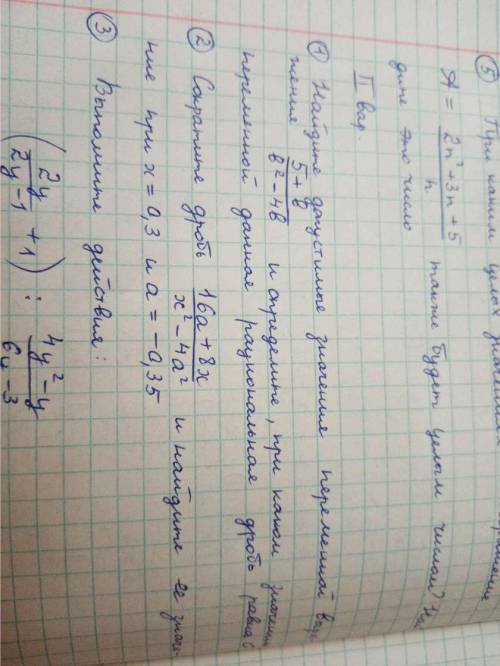 ⑤ При каким целых значениях
A = (2n² + 3n + 5)/n также будет целым числом? На
дите это число
II вар.
① Найдите допустимые значения переменной выра
жения (5 + в)/(в² - 4в) и определите, при каком значении
переменной данная рациональная дробь равна
② Сократите дробь (16a + 8x)/(x² - 4a²) и найдите её значе-
ние при x = 0,3 и a = -0,35
③ Выполните действия:
(2y/(2y - 1) + 1) : (4y² - y)/(6y - 3)